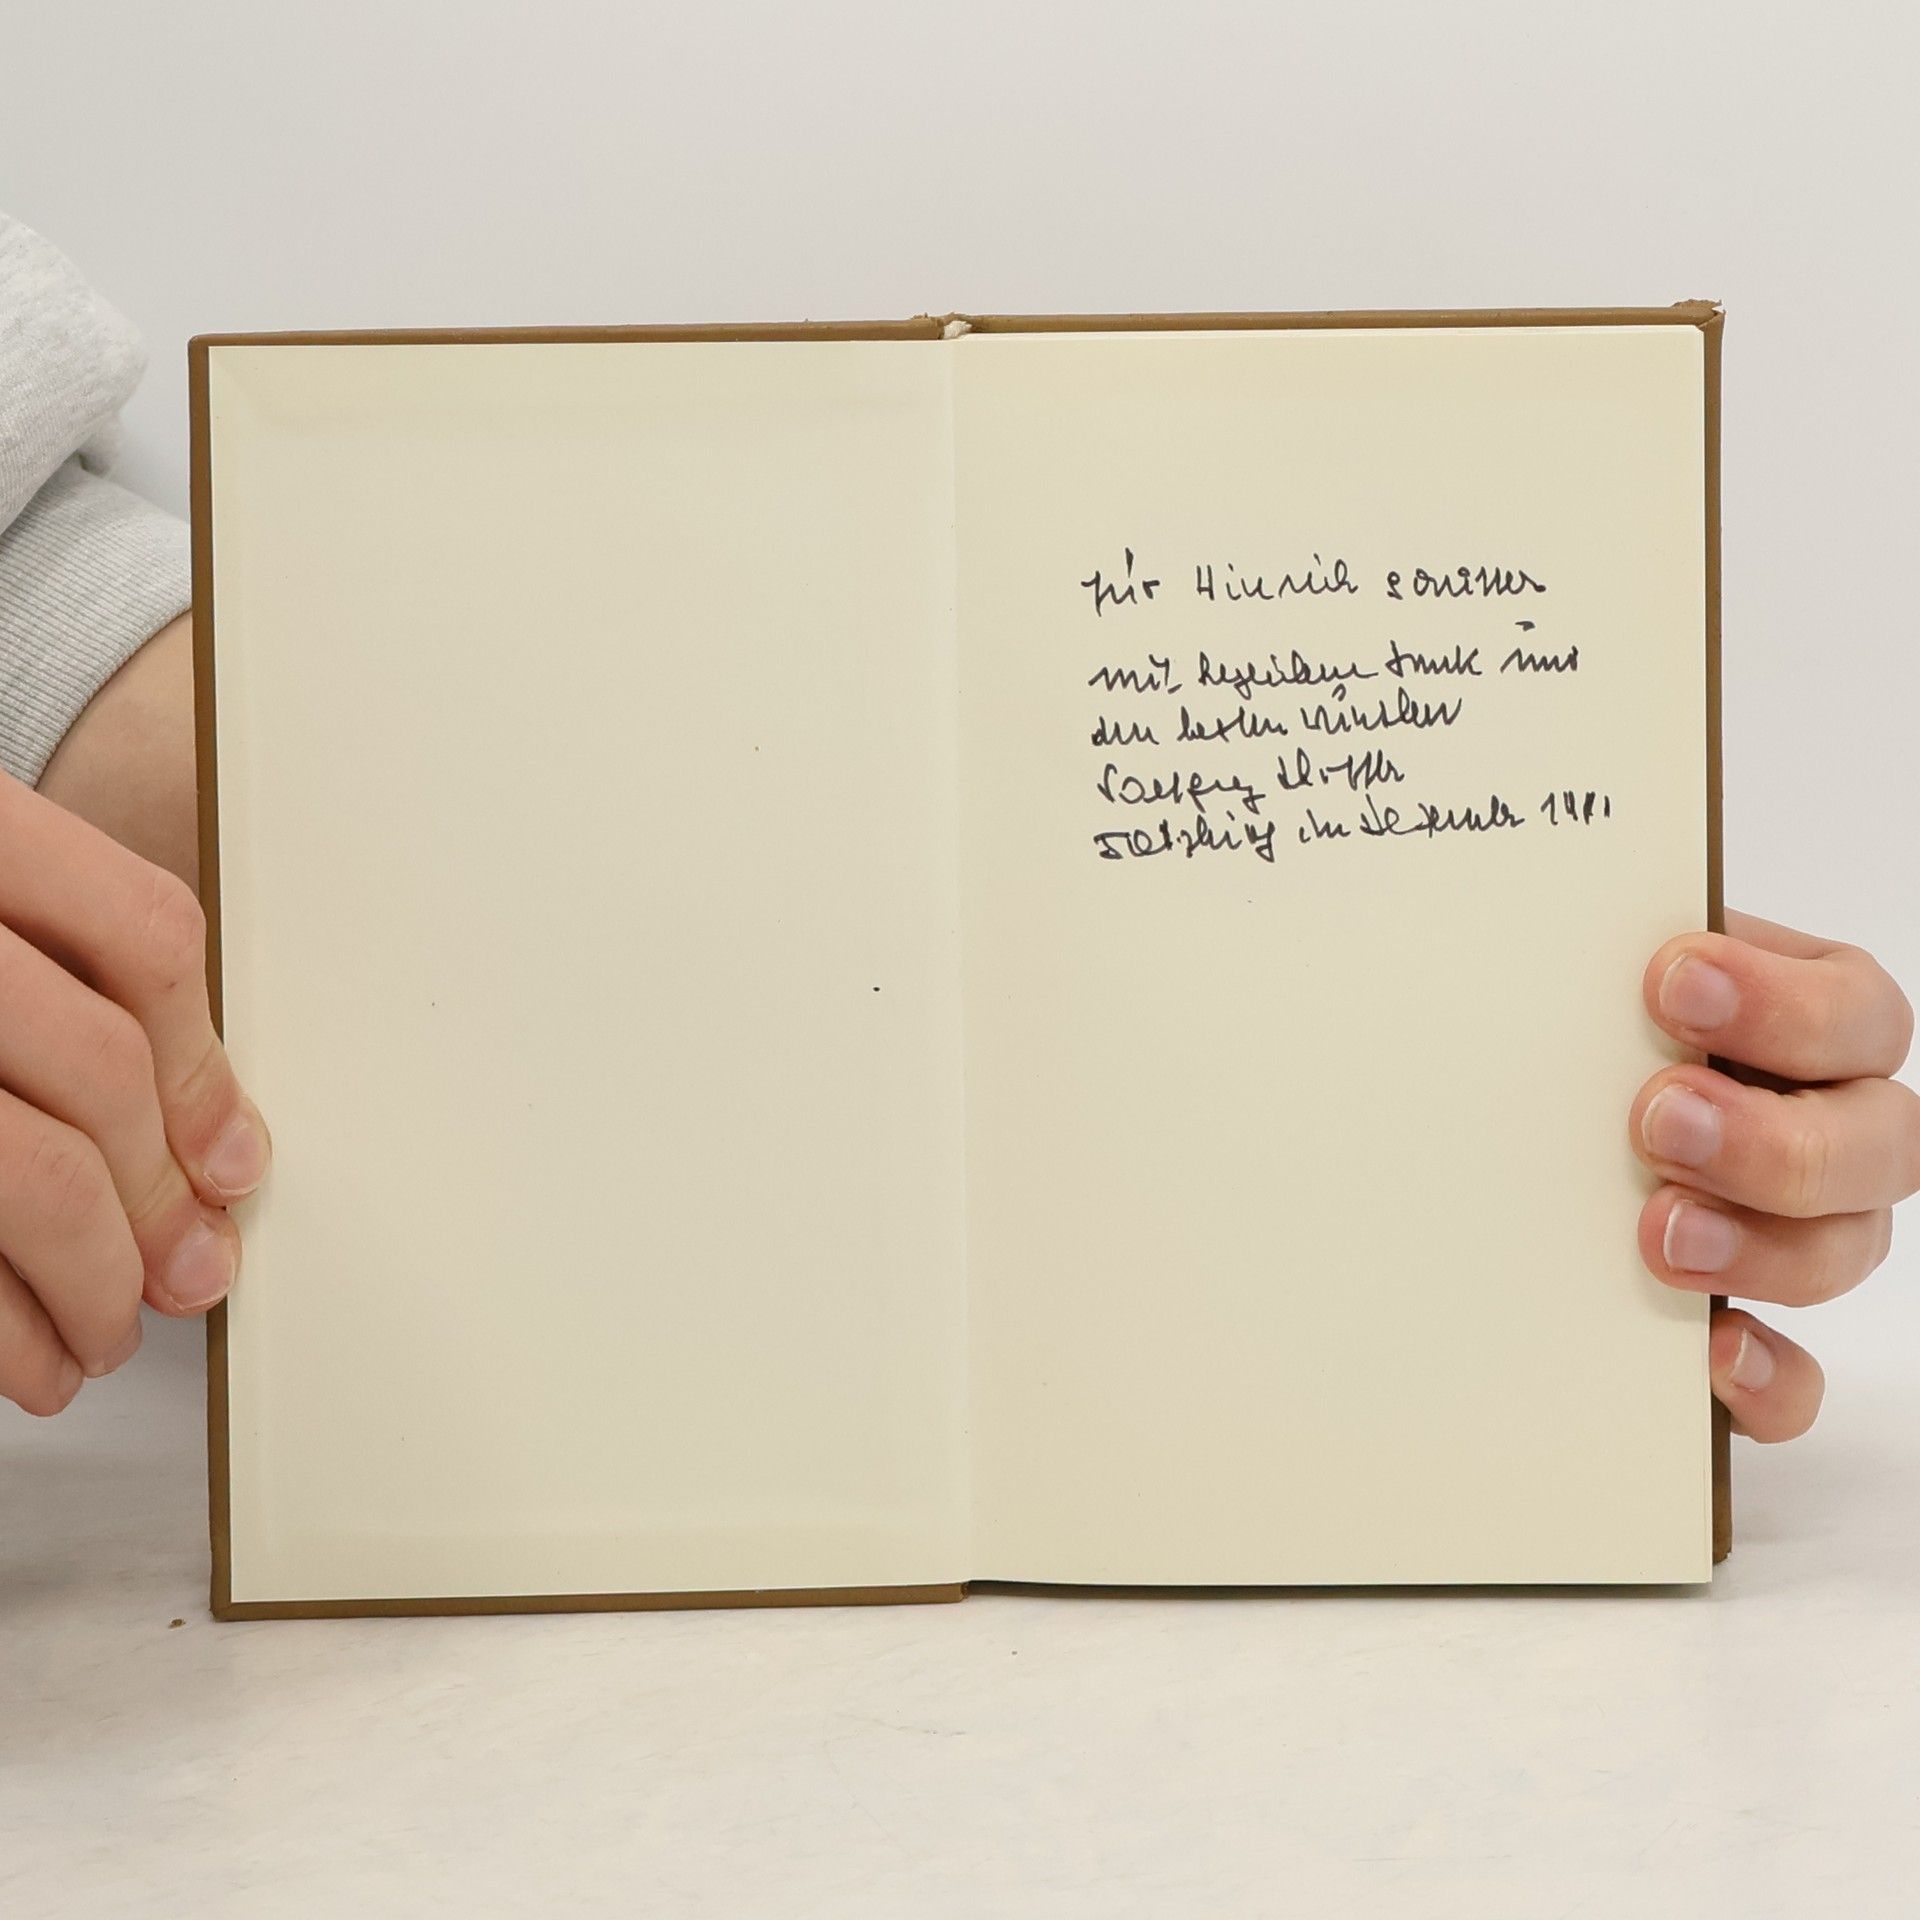 für Hinrich
mit herzlichem Dank und
den besten Wünschen
Wolfgang
Salzburg im Dezember